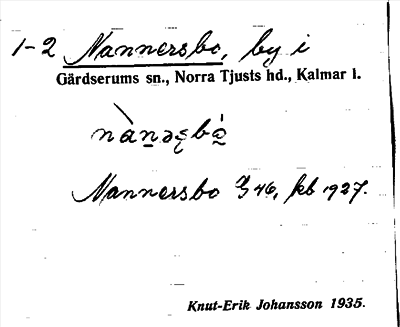 1-2 Nannersbo, by i
Gärdserums sn., Norra Tjusts hd., Kalmar l.
Nannersbo 46, kb 1927.
Knut-Erik Johansson 1935.